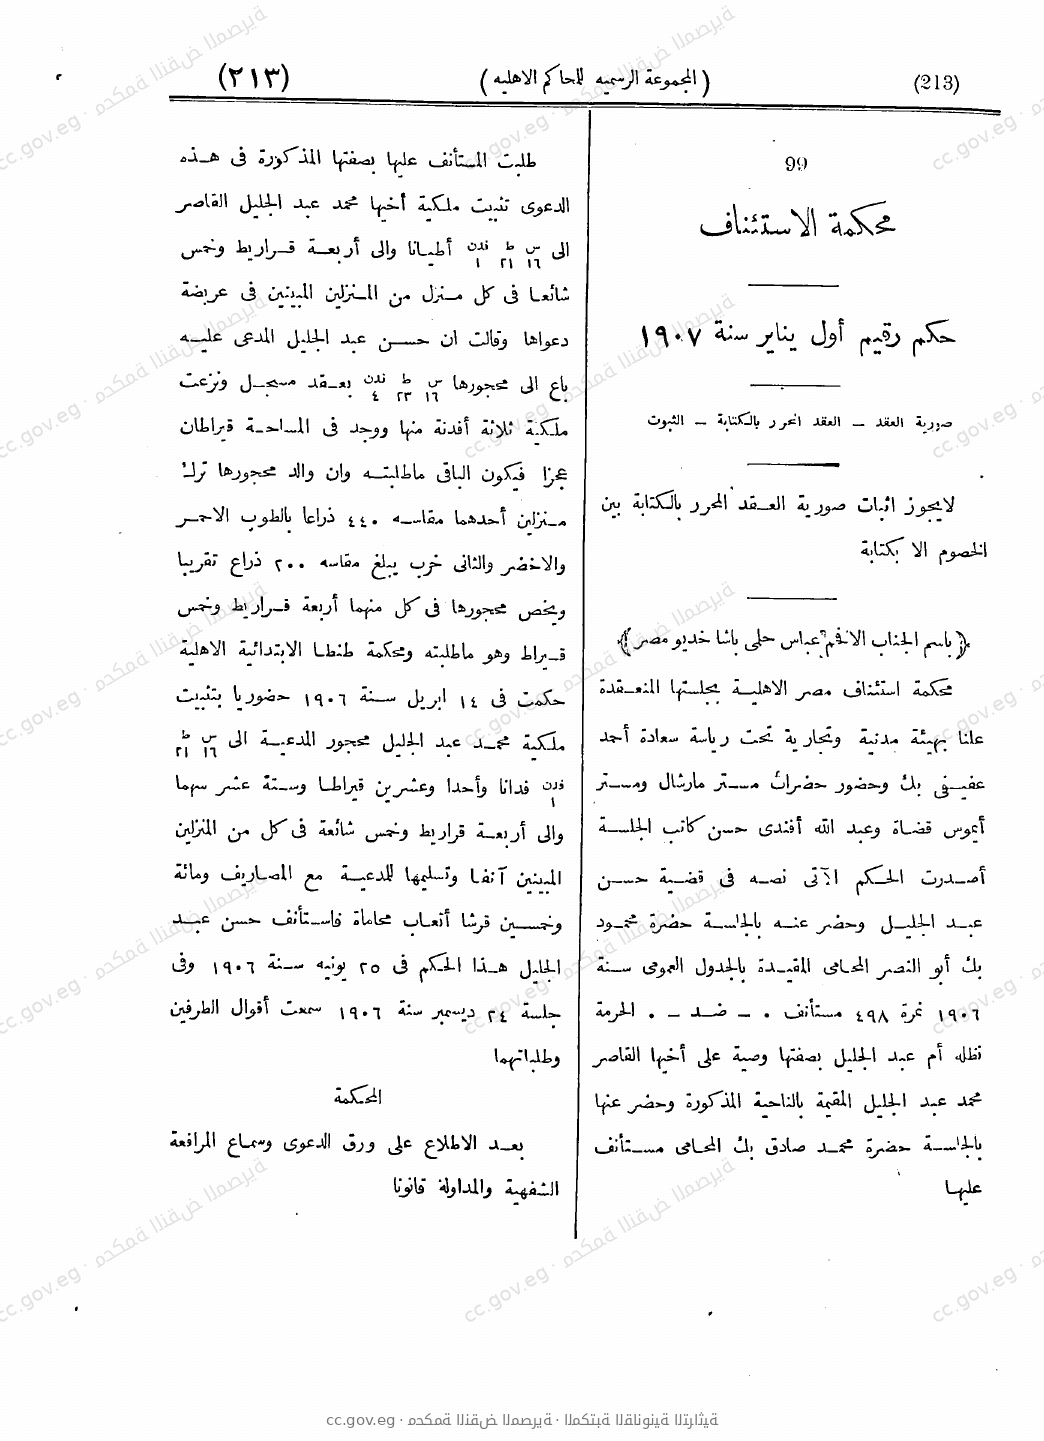 (213)
(المجموعة الرسمية للمحاكم الاهلية)
(٢١٣)
99
محكمة الاستئناف
حكم رقيم أول يناير سنة ١٩٠٧
صورية العقد – العقد المحرر بالكتابة – الثبوت
لايجوز اثبات صورية العقد المحرر بالكتابة بين
الخصوم الا بكتابة
﴿باسم الجناب الافخم عباس حلمى باشا خديو مصر﴾
محكمة استئناف مصر الاهلية بجلستها المنعقدة
علنا بهيئة مدنية وتجارية تحت رياسة سعادة أحمد
عفيفى بك وحضور حضرات مستر مارشال ومستر
أيموس قضاة وعبد الله أفندى حسن كاتب الجلسة
أصدرت الحكم الآتى نصه فى قضية حسن
عبد الجليل وحضر عنه بالجلسة حضرة محمود
بك أبو النصر المحامى المقيدة بالجدول العمومى سنة
١٩٠٦ نمرة ٤٩٨ مستأنف . – ضد – . الحرمة
نظله أم عبد الجليل بصفتها وصية على أخيها القاصر
محمد عبد الجليل المقيمة بالناحية المذكورة وحضر عنها
بالجلسة حضرة محمد صادق بك المحامى مستأنف
عليها
طلبت المستأنف عليها بصفتها المذكورة فى هذه
الدعوى تثبيت ملكية أخيها محمد عبد الجليل القاصر
الى س ١٦ ط ٢١ فدن ١ أطيانا والى أربعة قراريط وخمس
شائعا فى كل منزل من المنزلين المبينين فى عريضة
دعواها وقالت ان حسن عبد الجليل المدعى عليه
باع الى محجورها س ١٦ ط ٢٣ فدن ٤ بعقد مسجل ونزعت
ملكية ثلاثة أفدنة منها ووجد فى المساحة قيراطان
عجزا فيكون الباقى ماطلبته وان والد محجورها ترك
منزلين أحدهما مقاسه ٤٤٠ ذراعا بالطوب الاحمر
والاخضر والثانى خرب يبلغ مقاسه ٢٠٠ ذراع تقريبا
ويخص محجورها فى كل منهما أربعة قراريط وخمس
قيراط وهو ماطلبته ومحكمة طنطا الابتدائية الاهلية
حكمت فى ١٤ ابريل سنة ١٩٠٦ حضوريا بتثبيت
ملكية محمد عبد الجليل محجور المدعية الى س ١٦ ط ٢١
فدن ١ فدانا وأحدا وعشرين قيراطا وستة عشر سهما
والى أربعة قراريط وخمس شائعة فى كل من المنزلين
المبينين آنفا وتسليمها للمدعية مع المصاريف ومائة
وخمسين قرشا أتعاب محاماة فاستأنف حسن عبد
الجليل هذا الحكم فى ٢٥ يونيه سنة ١٩٠٦ وفى
جلسة ٢٤ ديسمبر سنة ١٩٠٦ سمعت أقوال الطرفين
وطلباتهما
المحكمة
بعد الاطلاع على ورق الدعوى وسماع المرافعة
الشفهية والمداولة قانونا
cc.gov.eg · محكمة النقض المصرية · المكتبة القانونية التراثية